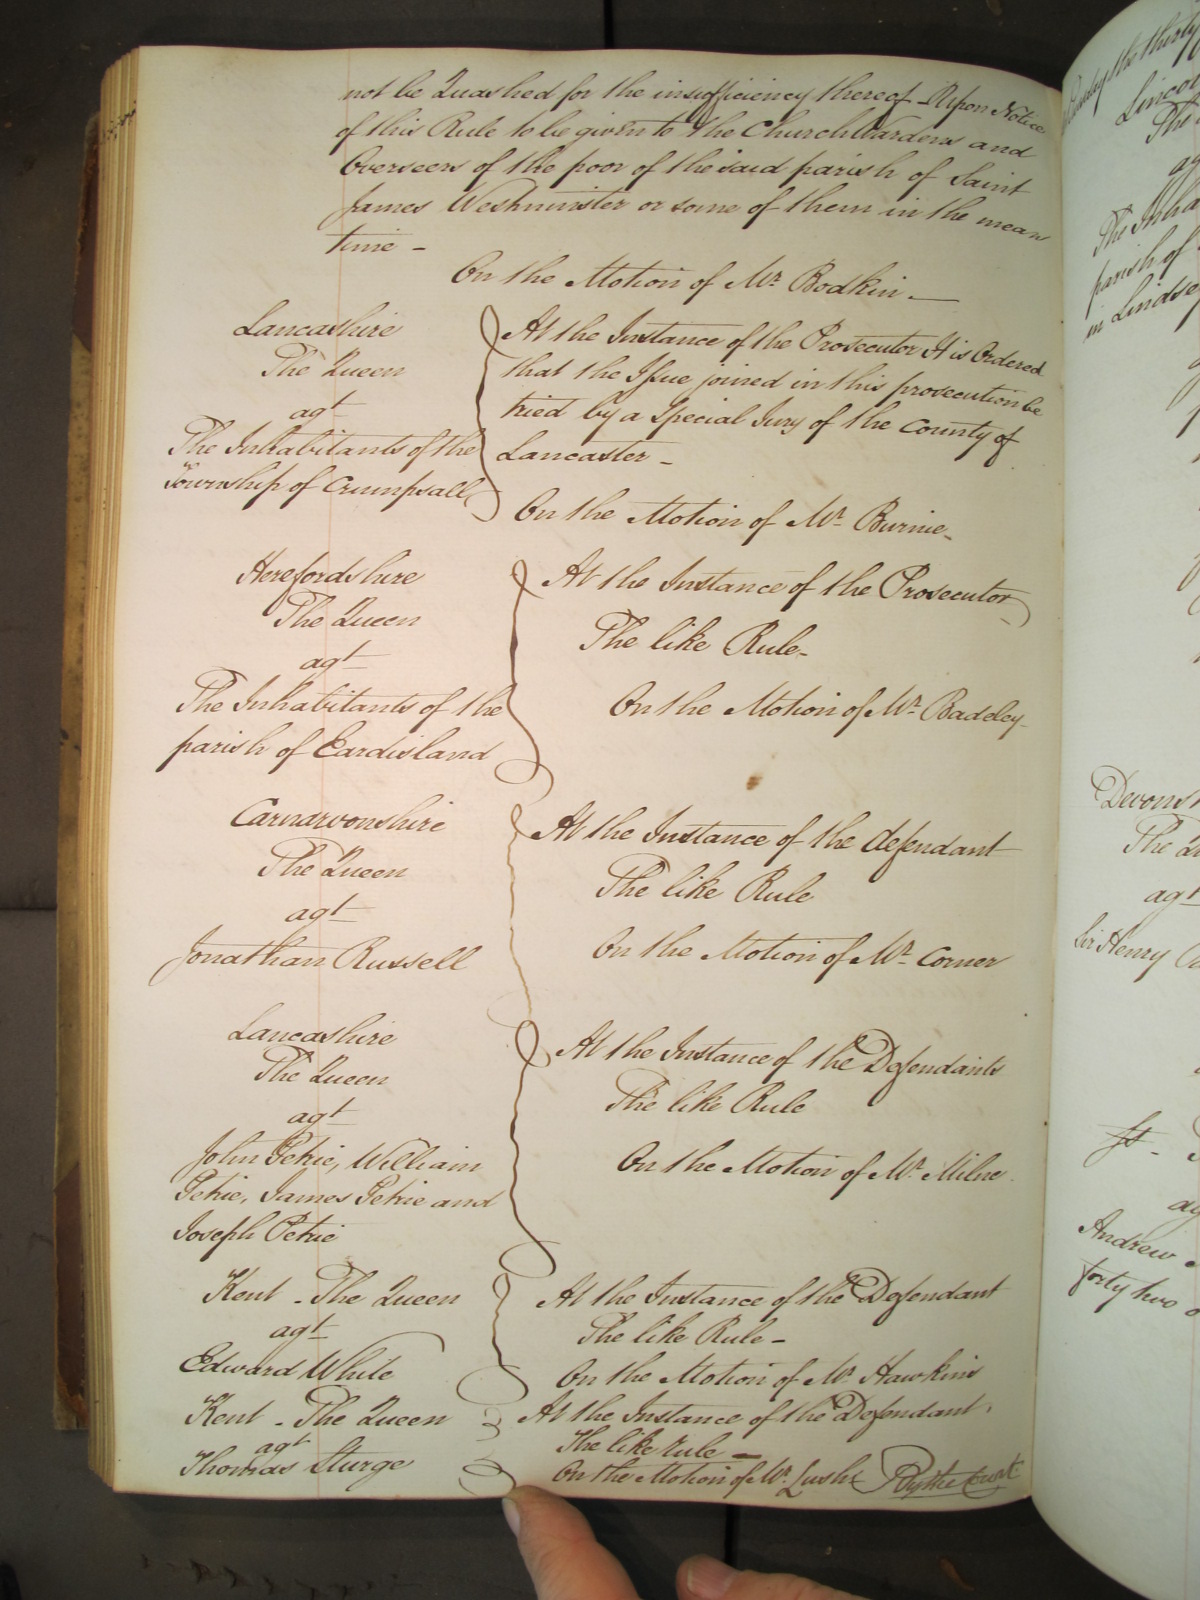 not be Quashed for the insufficiency thereof - Upon Notice
of this Rule to be given to the Churchwardens and
Overseers of the poor of the said parish of Saint
James Westminster or some of them in the mean
time -
On the Motion of Mr. Bodkin -
Lancashire
The Queen
agt
The Inhabitants of the
Township of Crumpsall
At the Instance of the Prosecutor It is Ordered
that the Issue joined in this prosecution be
tried by a Special Jury of the County of
Lancaster -
On the Motion of Mr. Burnie -
Herefordshire
The Queen
agt
The Inhabitants of the
parish of Eardisland
At the Instance of the Prosecutor
The like Rule -
On the Motion of Mr. Badeley -
Carnarvonshire
The Queen
agt
Jonathan Russell
At the Instance of the defendant
The like Rule
On the Motion of Mr. Corner
Lancashire
The Queen
agt
John Petrie, William
Petrie, James Petrie and
Joseph Petrie
At the Instance of the Defendants
The like Rule
On the Motion of Mr. Milne
Kent - The Queen
agt
Edward White
At the Instance of the Defendant
The like Rule -
On the Motion of Mr. Hawkins
Kent - The Queen
agt
Thomas Sturge
At the Instance of the Defendant
The like Rule -
On the Motion of Mr. Lush By the Court
The
parish of
in Lindse
The
agt
Sir Henry
Andrew
forty two